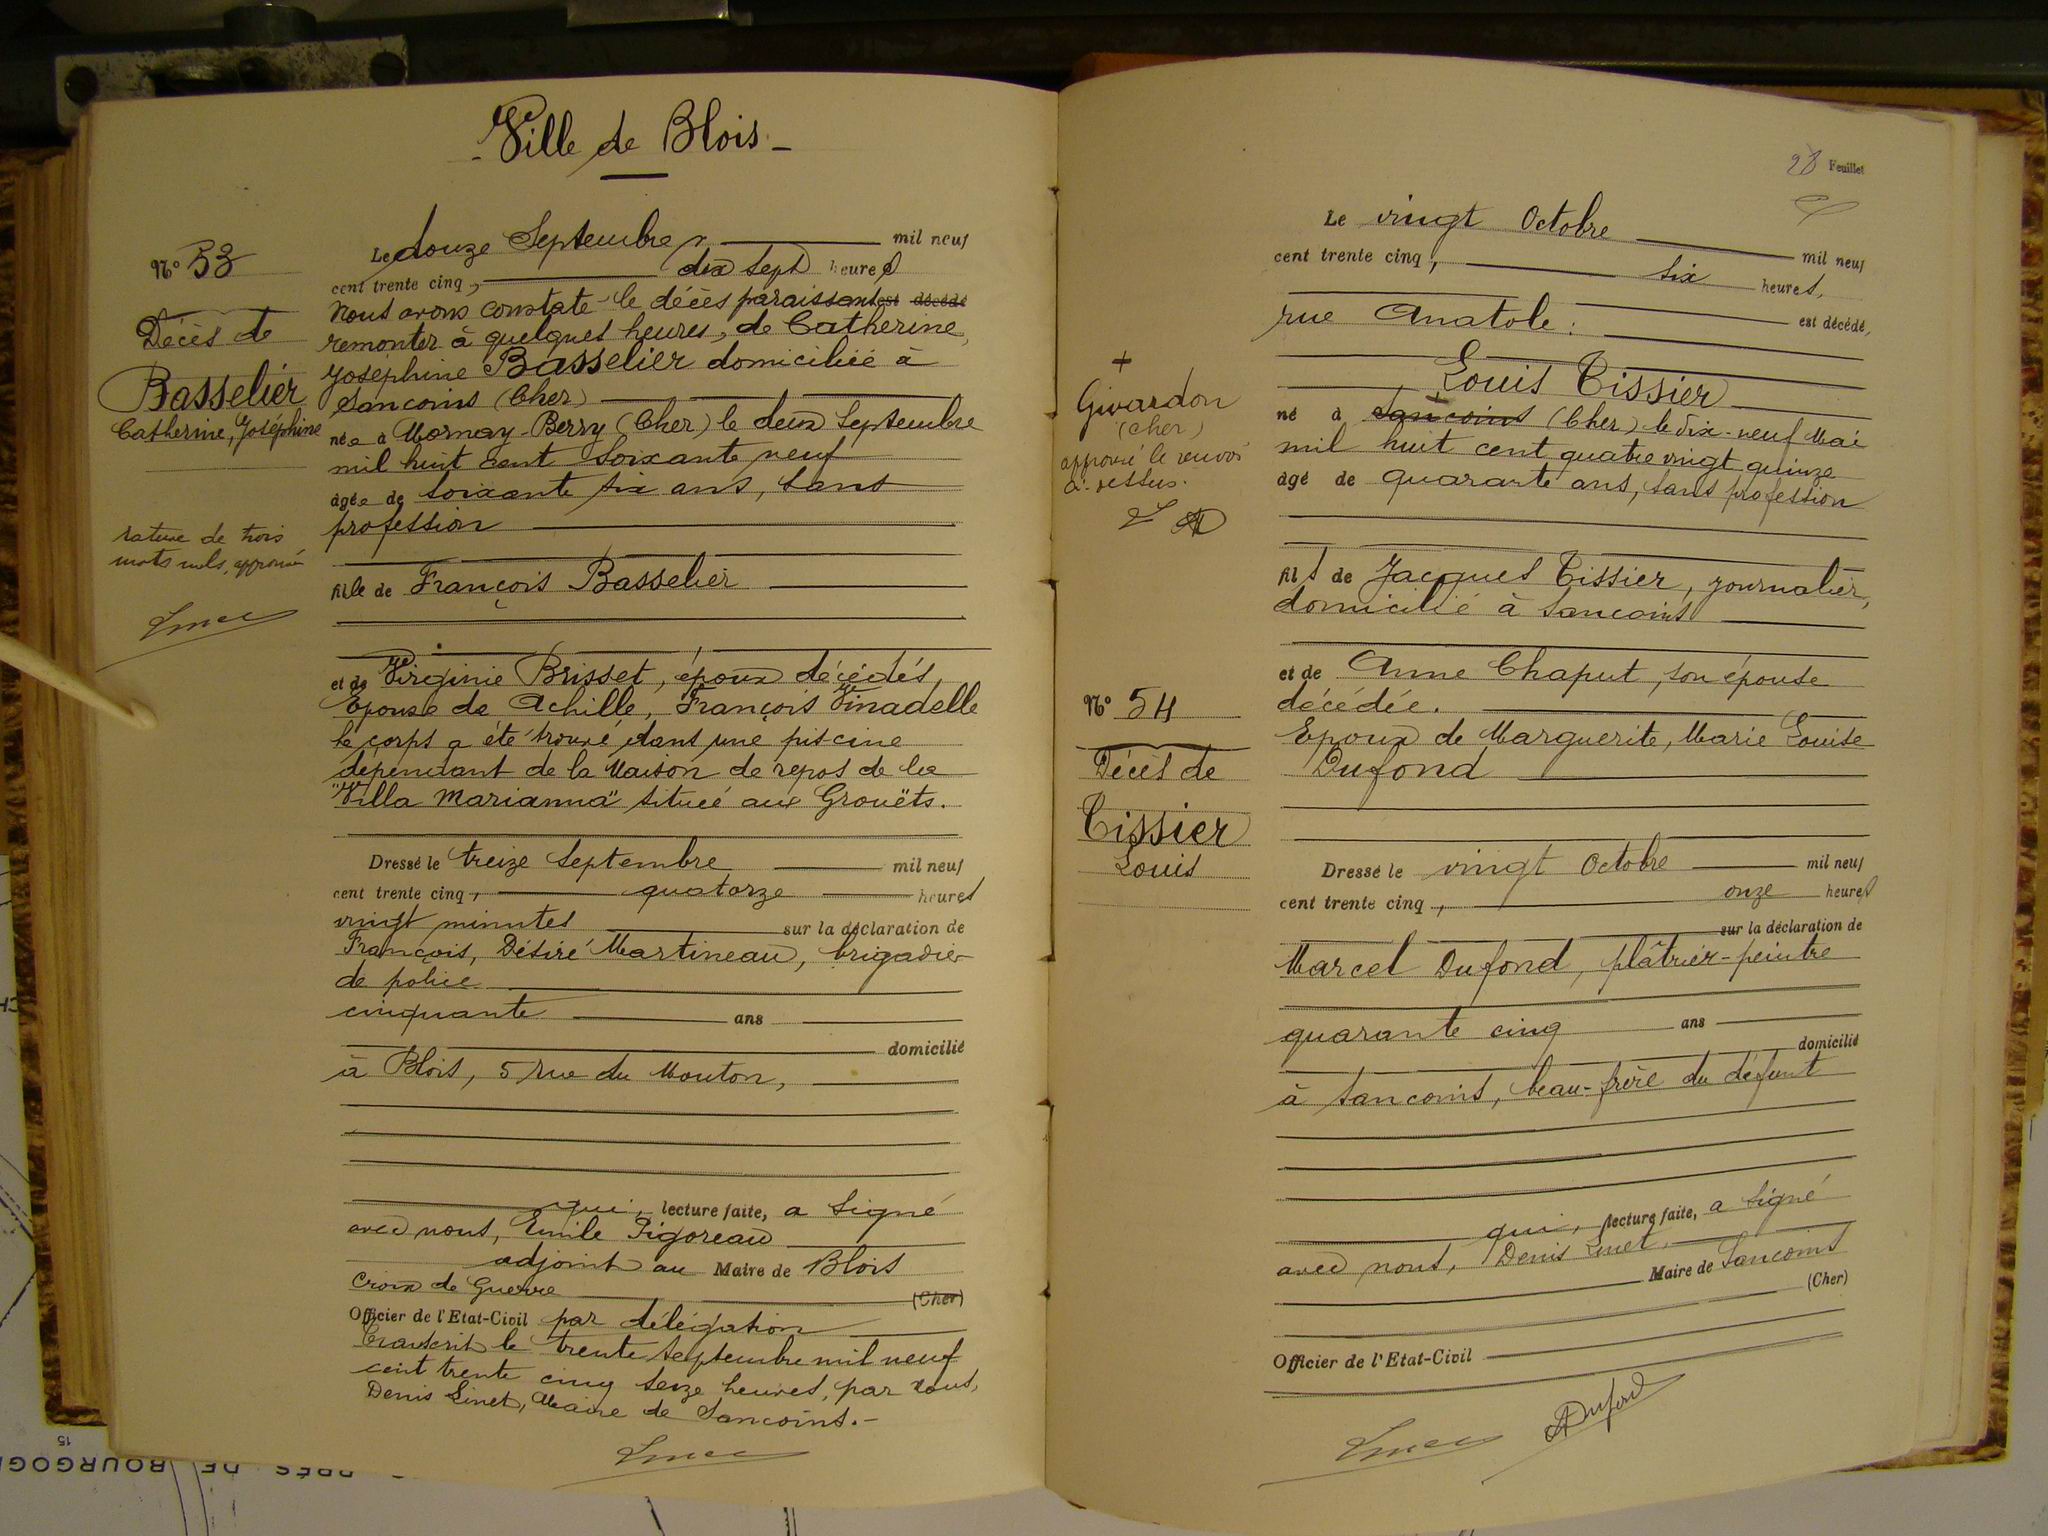 - Ville de Blois -
N° 53
Décès de
Basselier
Catherine, Joséphine
rature de trois
mots nuls, approuvé
Le douze Septembre mil neuf
cent trente cinq, dix sept heures
Nous avons constaté le décès paraissant est décédé
remonter à quelques heures, de Catherine,
Joséphine Basselier domiciliée à
Sancoins (Cher)
née à Mornay-Berry (Cher) le deux Septembre
mil huit cent soixante neuf
âgée de soixante six ans, sans
profession
fille de François Basselier
et de Virginie Brisset, époux décédés,
Epouse de Achille, François Vinadelle
le corps a été trouvé dans une piscine
dépendant de la Maison de repos de la
"Villa Marianna" située aux Grouëts.
Dressé le treize Septembre mil neuf
cent trente cinq, quatorze heures
vingt minutes sur la déclaration de
François, Désiré Martineau, brigadier
de police
cinquante ans
domicilié
à Blois, 5 rue du Mouton,
qui, lecture faite, a signé
avec nous, Emile Pigoreau
adjoint au Maire de Blois
Croix de Guerre (Cher)
Officier de l'Etat-Civil par délégation
Transcrit le trente Septembre mil neuf
cent trente cinq seize heures, par nous,
Denis Linet, Maire de Sancoins.-
28 Feuillet
Le vingt Octobre mil neuf
cent trente cinq, six heures,
rue Anatole. est décédé,
Louis Tissier
+
Givardon
(Cher)
approuvé le renvoi
ci-dessus.
né à Sancoins (Cher) le dix-neuf Mai
mil huit cent quatre vingt quinze
âgé de quarante ans, sans profession
fils de Jacques Tissier, journalier,
domicilié à Sancoins
et de Anne Chaput, son épouse
décédée.
Epoux de Marguerite, Marie Louise
Dufond
N° 54
Décès de
Tissier
Louis
Dressé le vingt Octobre mil neuf
cent trente cinq, onze heures
sur la déclaration de
Marcel Dufond, plâtrier-peintre
quarante cinq ans
domicilié
à Sancoins, beau-frère du défunt
qui, lecture faite, a signé
avec nous, Denis Linet,
Maire de Sancoins
(Cher)
Officier de l'Etat-Civil
Dufond
15
PRÉS DE BOURGOG